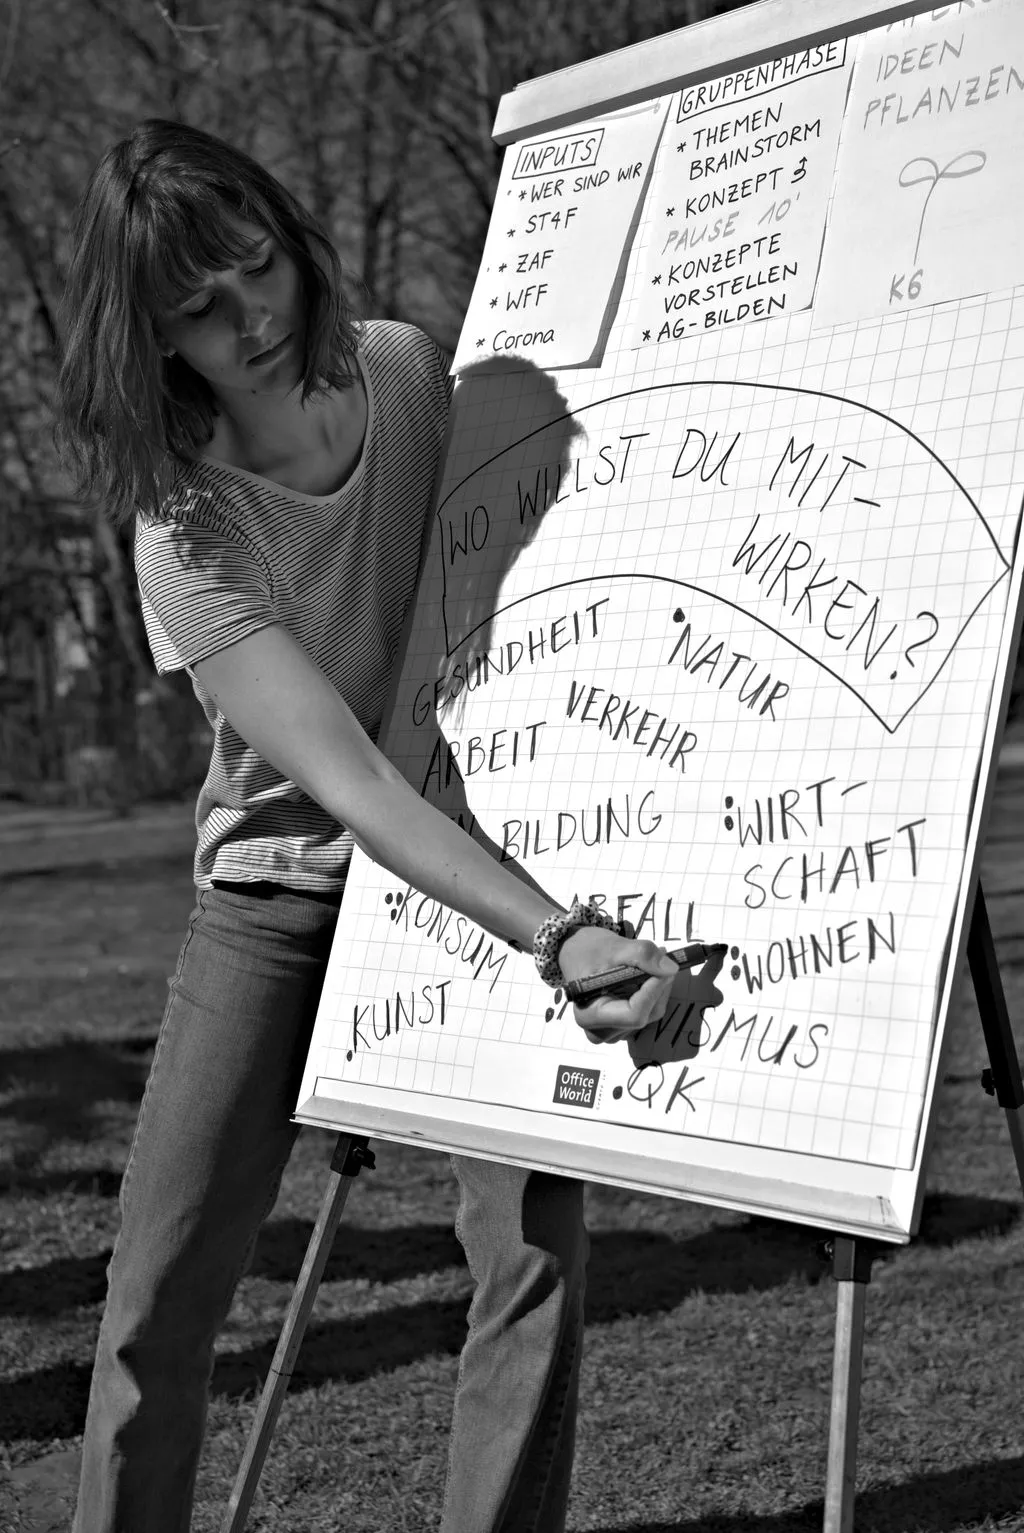 INPUTS
* WER SIND WIR
* ST4F
* ZAF
* WFF
* Corona
GRUPPENPHASE
* THEMEN
BRAINSTORM
* KONZEPT
PAUSE 10'
* KONZEPTE
VORSTELLEN
* AG-BILDEN
IDEEN
PFLANZEN
K6
WO WILLST DU MIT-
WIRKEN?
GESUNDHEIT
NATUR
VERKEHR
ARBEIT
BILDUNG
WIRT-
SCHAFT
KONSUM
ABFALL
WOHNEN
KUNST
VISMUS
QK
Office
World